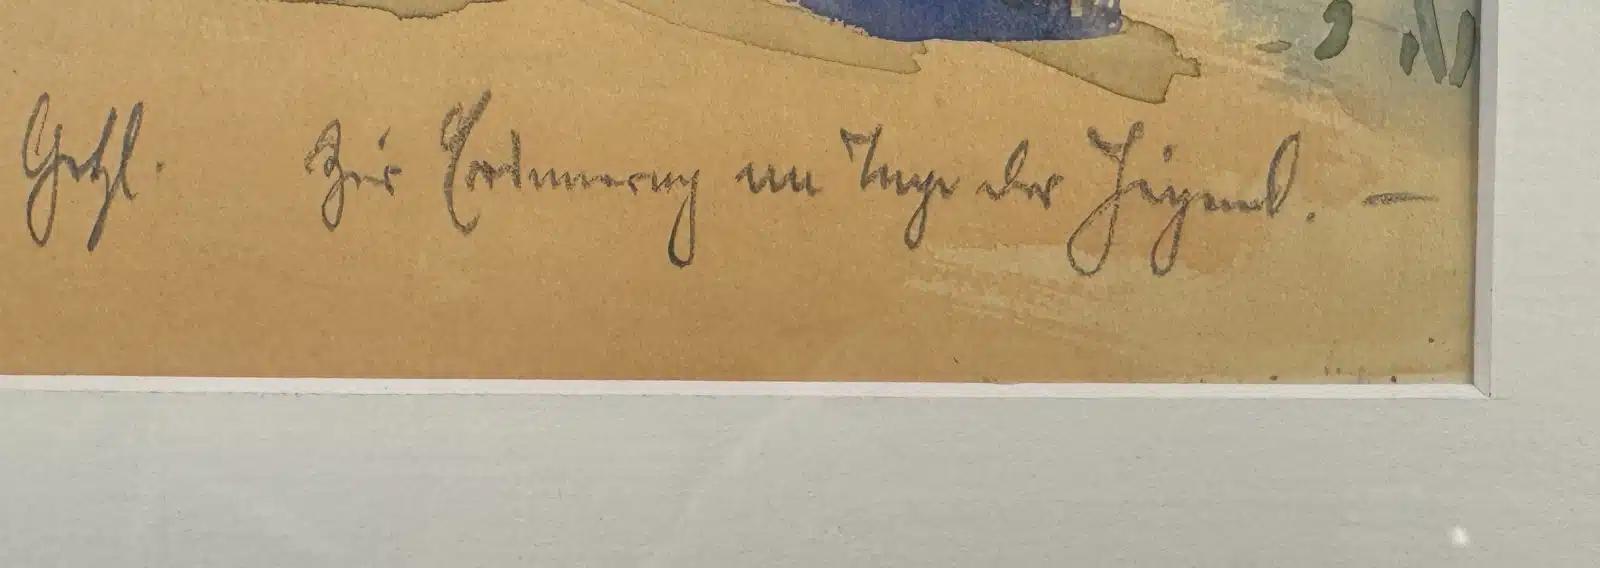 Hetzl. Zur Erinnerung an Tage der Jugend. —